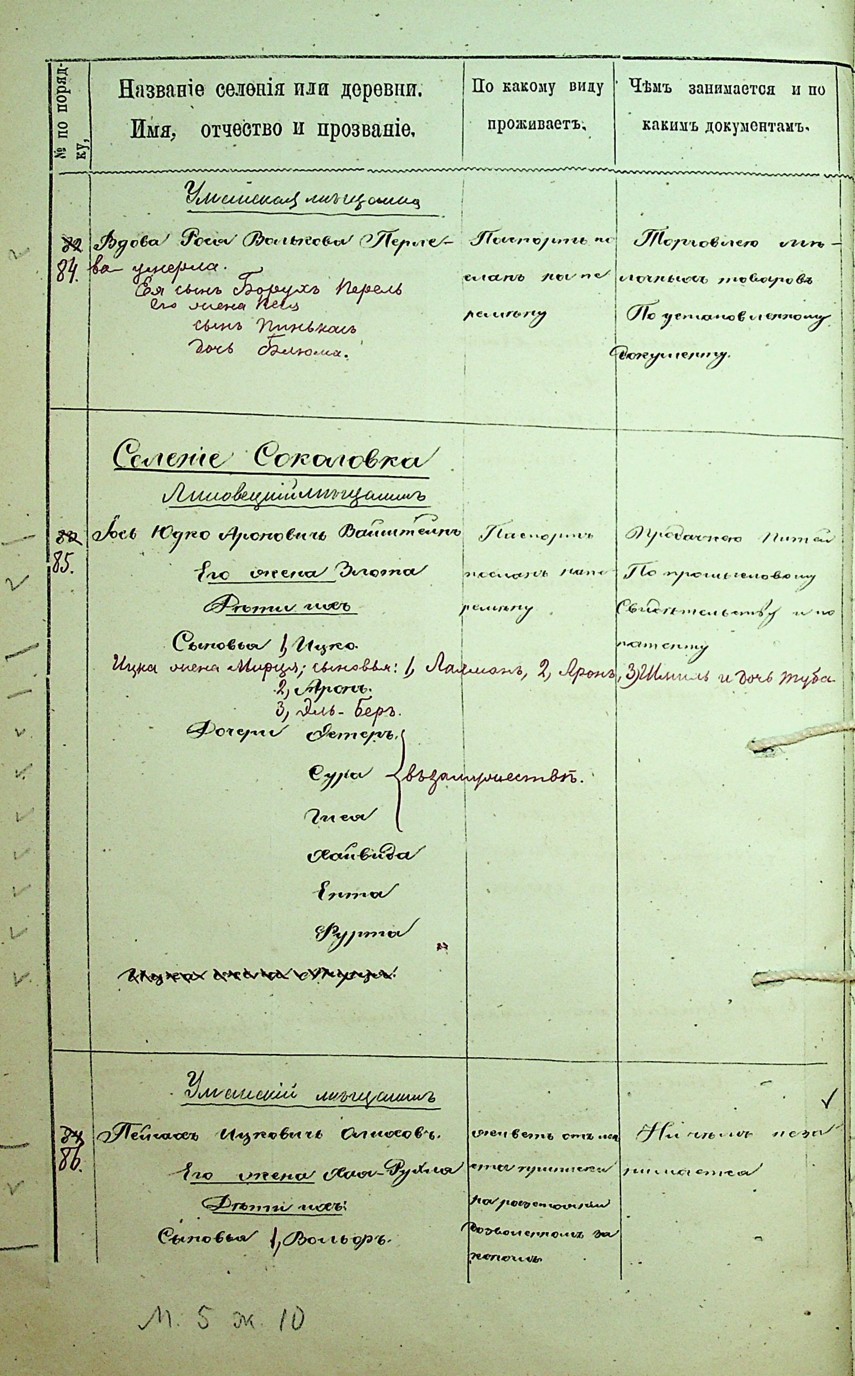 № по поряд-
ку,
Названіе селенія или деревни.
Имя, отчество и прозваніе.
По какому виду
проживаетъ.
Чѣмъ занимается и по
какимъ документамъ.
Уманская мѣщанка
84.
Вдова Рося Волькова Перле-
ва умерла.
Ея сынъ Борухъ Перель
Его жена Неся
сынъ Пинькасъ
дочь Блюма.
Паспортъ по
сланъ на пе
ремѣну
Торговлею мѣ-
лочныхъ товаровъ
По установленному
документу.
Селеніе Соколовка
Липовецкій мѣщанинъ
85.
Іось Юдко Ароновичъ Вайнштейнъ
Его жена Злота
Дѣти ихъ
Сыновья 1, Ицко.
Ицка жена Мирця; сыновья: 1, Лахманъ, 2, Аронъ, 3, Шмиль и дочь Туба
2, Аронъ.
3, Эль-Беръ.
Дочери Эстеръ.
Сура въ замужествѣ.
Гися
Хайвида
Ента
Фурта
Паспортъ
посланъ на пе
ремѣну
Продажею питей
По промысловому
Свидѣтельству и по
патенту
Уманскій мѣщанинъ
86.
Пейсахъ Ицковичъ
Его жена Хая-Рухля
Дѣти ихъ:
Сыновья 1, Вольфъ.
живетъ отъ мѣ
ста приписки
на разстояніи
дозволенномъ за
кономъ
Ни чѣмъ не за
нимается
М. 5 ж. 10